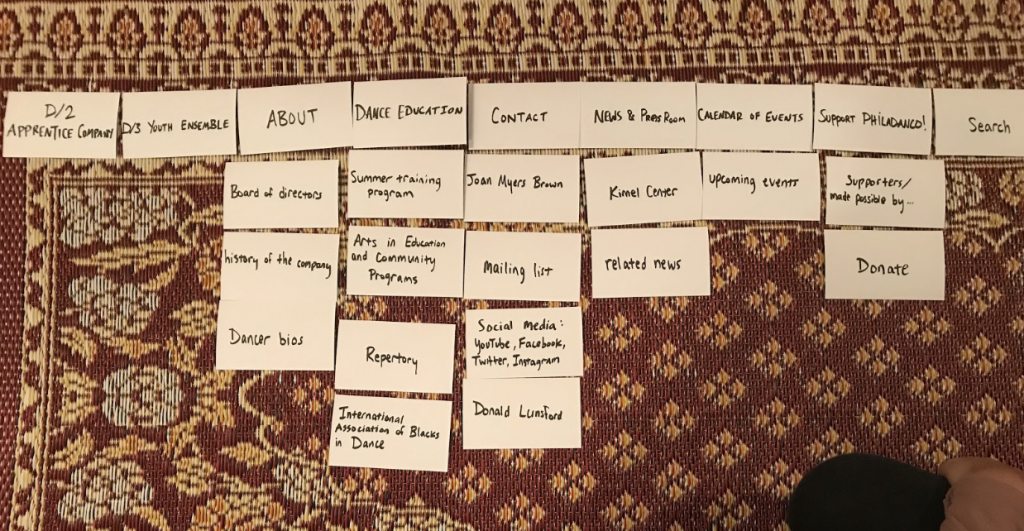 D/2
APPRENTICE COMPANY
D/3 YOUTH ENSEMBLE
ABOUT
DANCE EDUCATION
CONTACT
NEWS & PRESS ROOM
CALENDAR OF EVENTS
SUPPORT PHILADANCO!
Search
Board of directors
history of the company
Dancer bios
Summer training
program
Arts in Education
and Community
Programs
Repertory
International
Association of Blacks
in Dance
Joan Myers Brown
Mailing list
Social media:
YouTube, Facebook,
Twitter, Instagram
Donald Lunsford
Kimel Center
related news
upcoming events
Supporters/
made possible by...
Donate